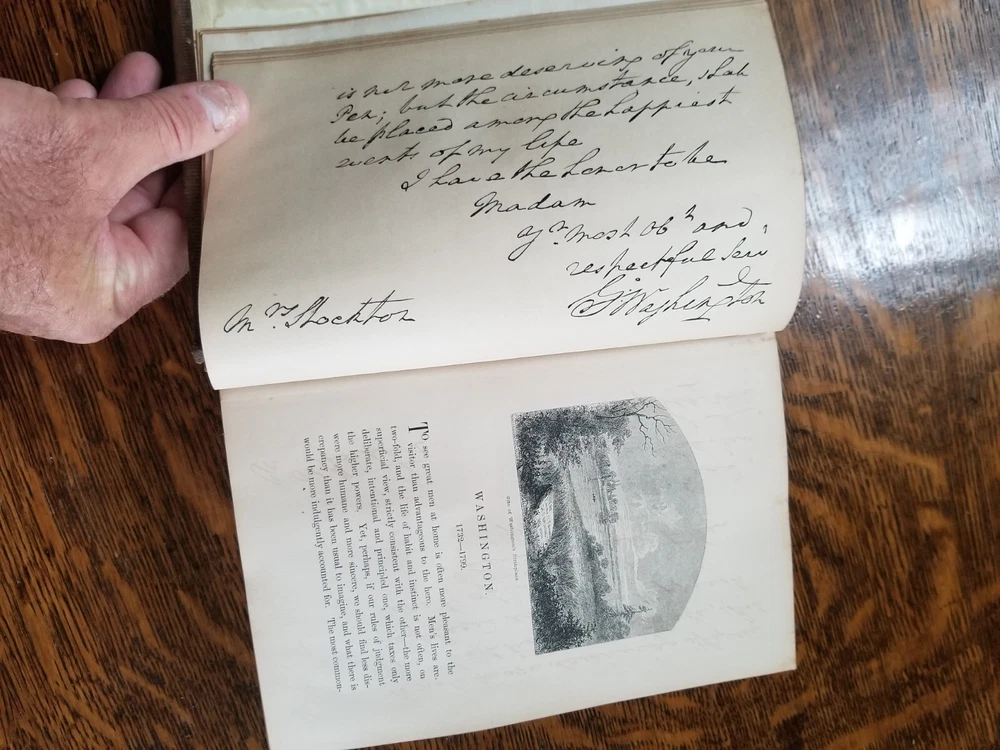 is not more deserving of your
Pen; but the circumstance, shall
be placed among the happiest
events of my life
I have the honor to be
Madam
Yr. most Obt and
respectful Serv
Mrs. Stockton
Go Washington
Site of Washington's Birthplace
WASHINGTON.
1732—1799.
To see great men at home is often more pleasant to the
visitor than advantageous to the hero. Men's lives are
two-fold, and the life of habit and instinct is not often, on
superficial view, strictly consistent with the other—the more
deliberate, intentional and principled one, which taxes only
the higher powers. Yet, perhaps, if our rules of judgment
were more humane and more sincere, we should find less dis-
crepancy than it has been usual to imagine, and what there is
would be more indulgently accounted for. The most common-